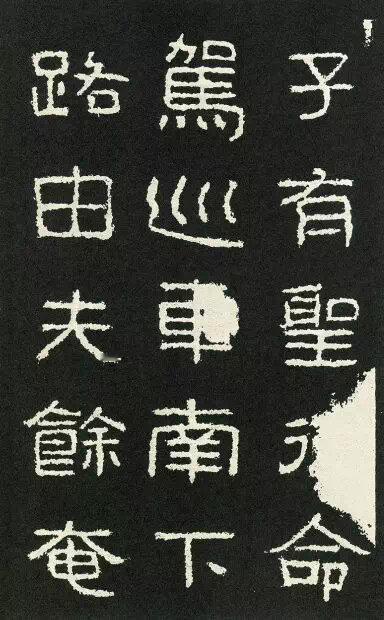 子有聖命
駕巡車南下
路由夫餘奄